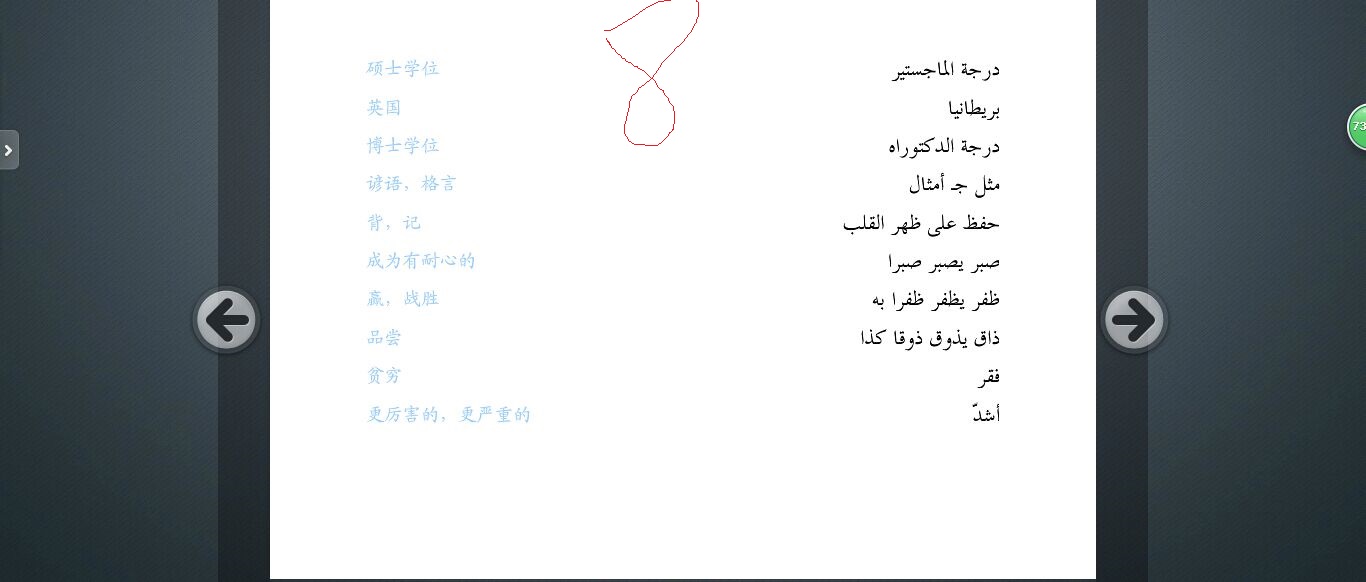 硕士学位 درجة الماجستير
英国 بريطانيا
博士学位 درجة الدكتوراه
谚语，格言 مثل جـ أمثال
背，记 حفظ على ظهر القلب
成为有耐心的 صبر يصبر صبرا
赢，战胜 ظفر يظفر ظفرا به
品尝 ذاق يذوق ذوقا كذا
贫穷 فقر
更厉害的，更严重的 أشدّ
8
73